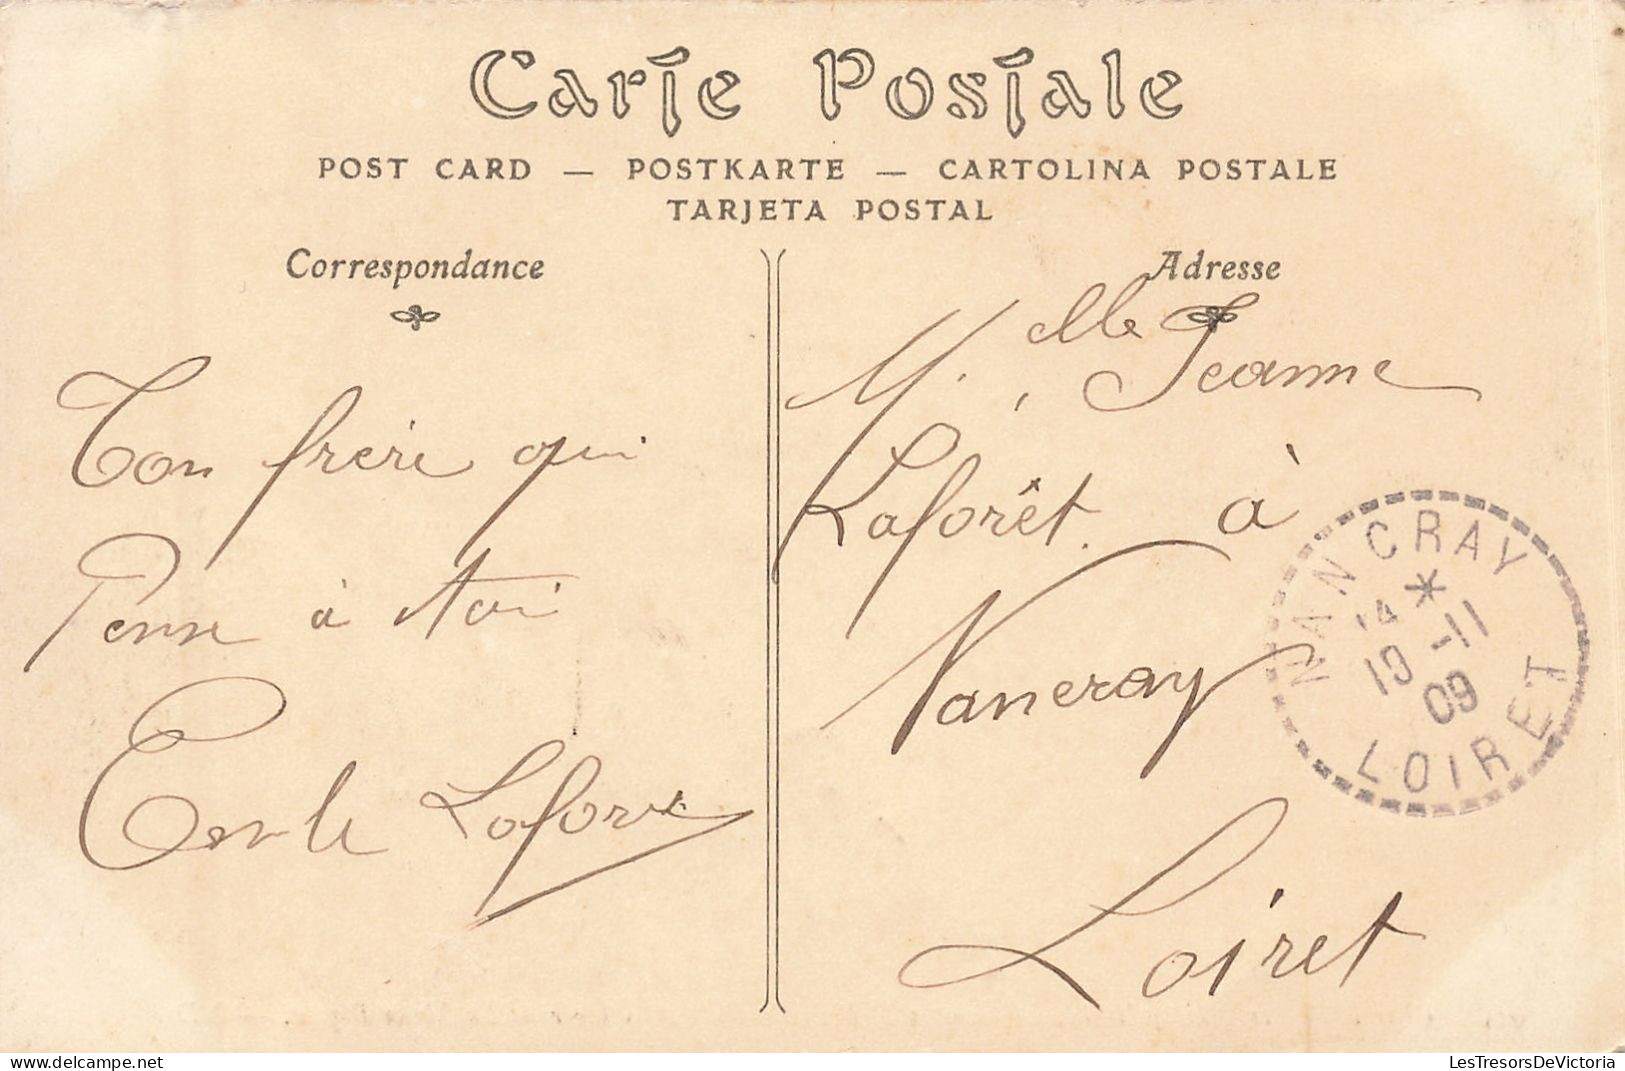 Carte Postale
POST CARD — POSTKARTE — CARTOLINA POSTALE
TARJETA POSTAL
Correspondance
Ton frère qui
Pense à toi
Laforêt
Adresse
M.elle Jeanne
Laforêt à
Nancray
Loiret
NANCRAY
14
19 -11
09
LOIRET
delcampe.net
LesTresorsDeVictoria